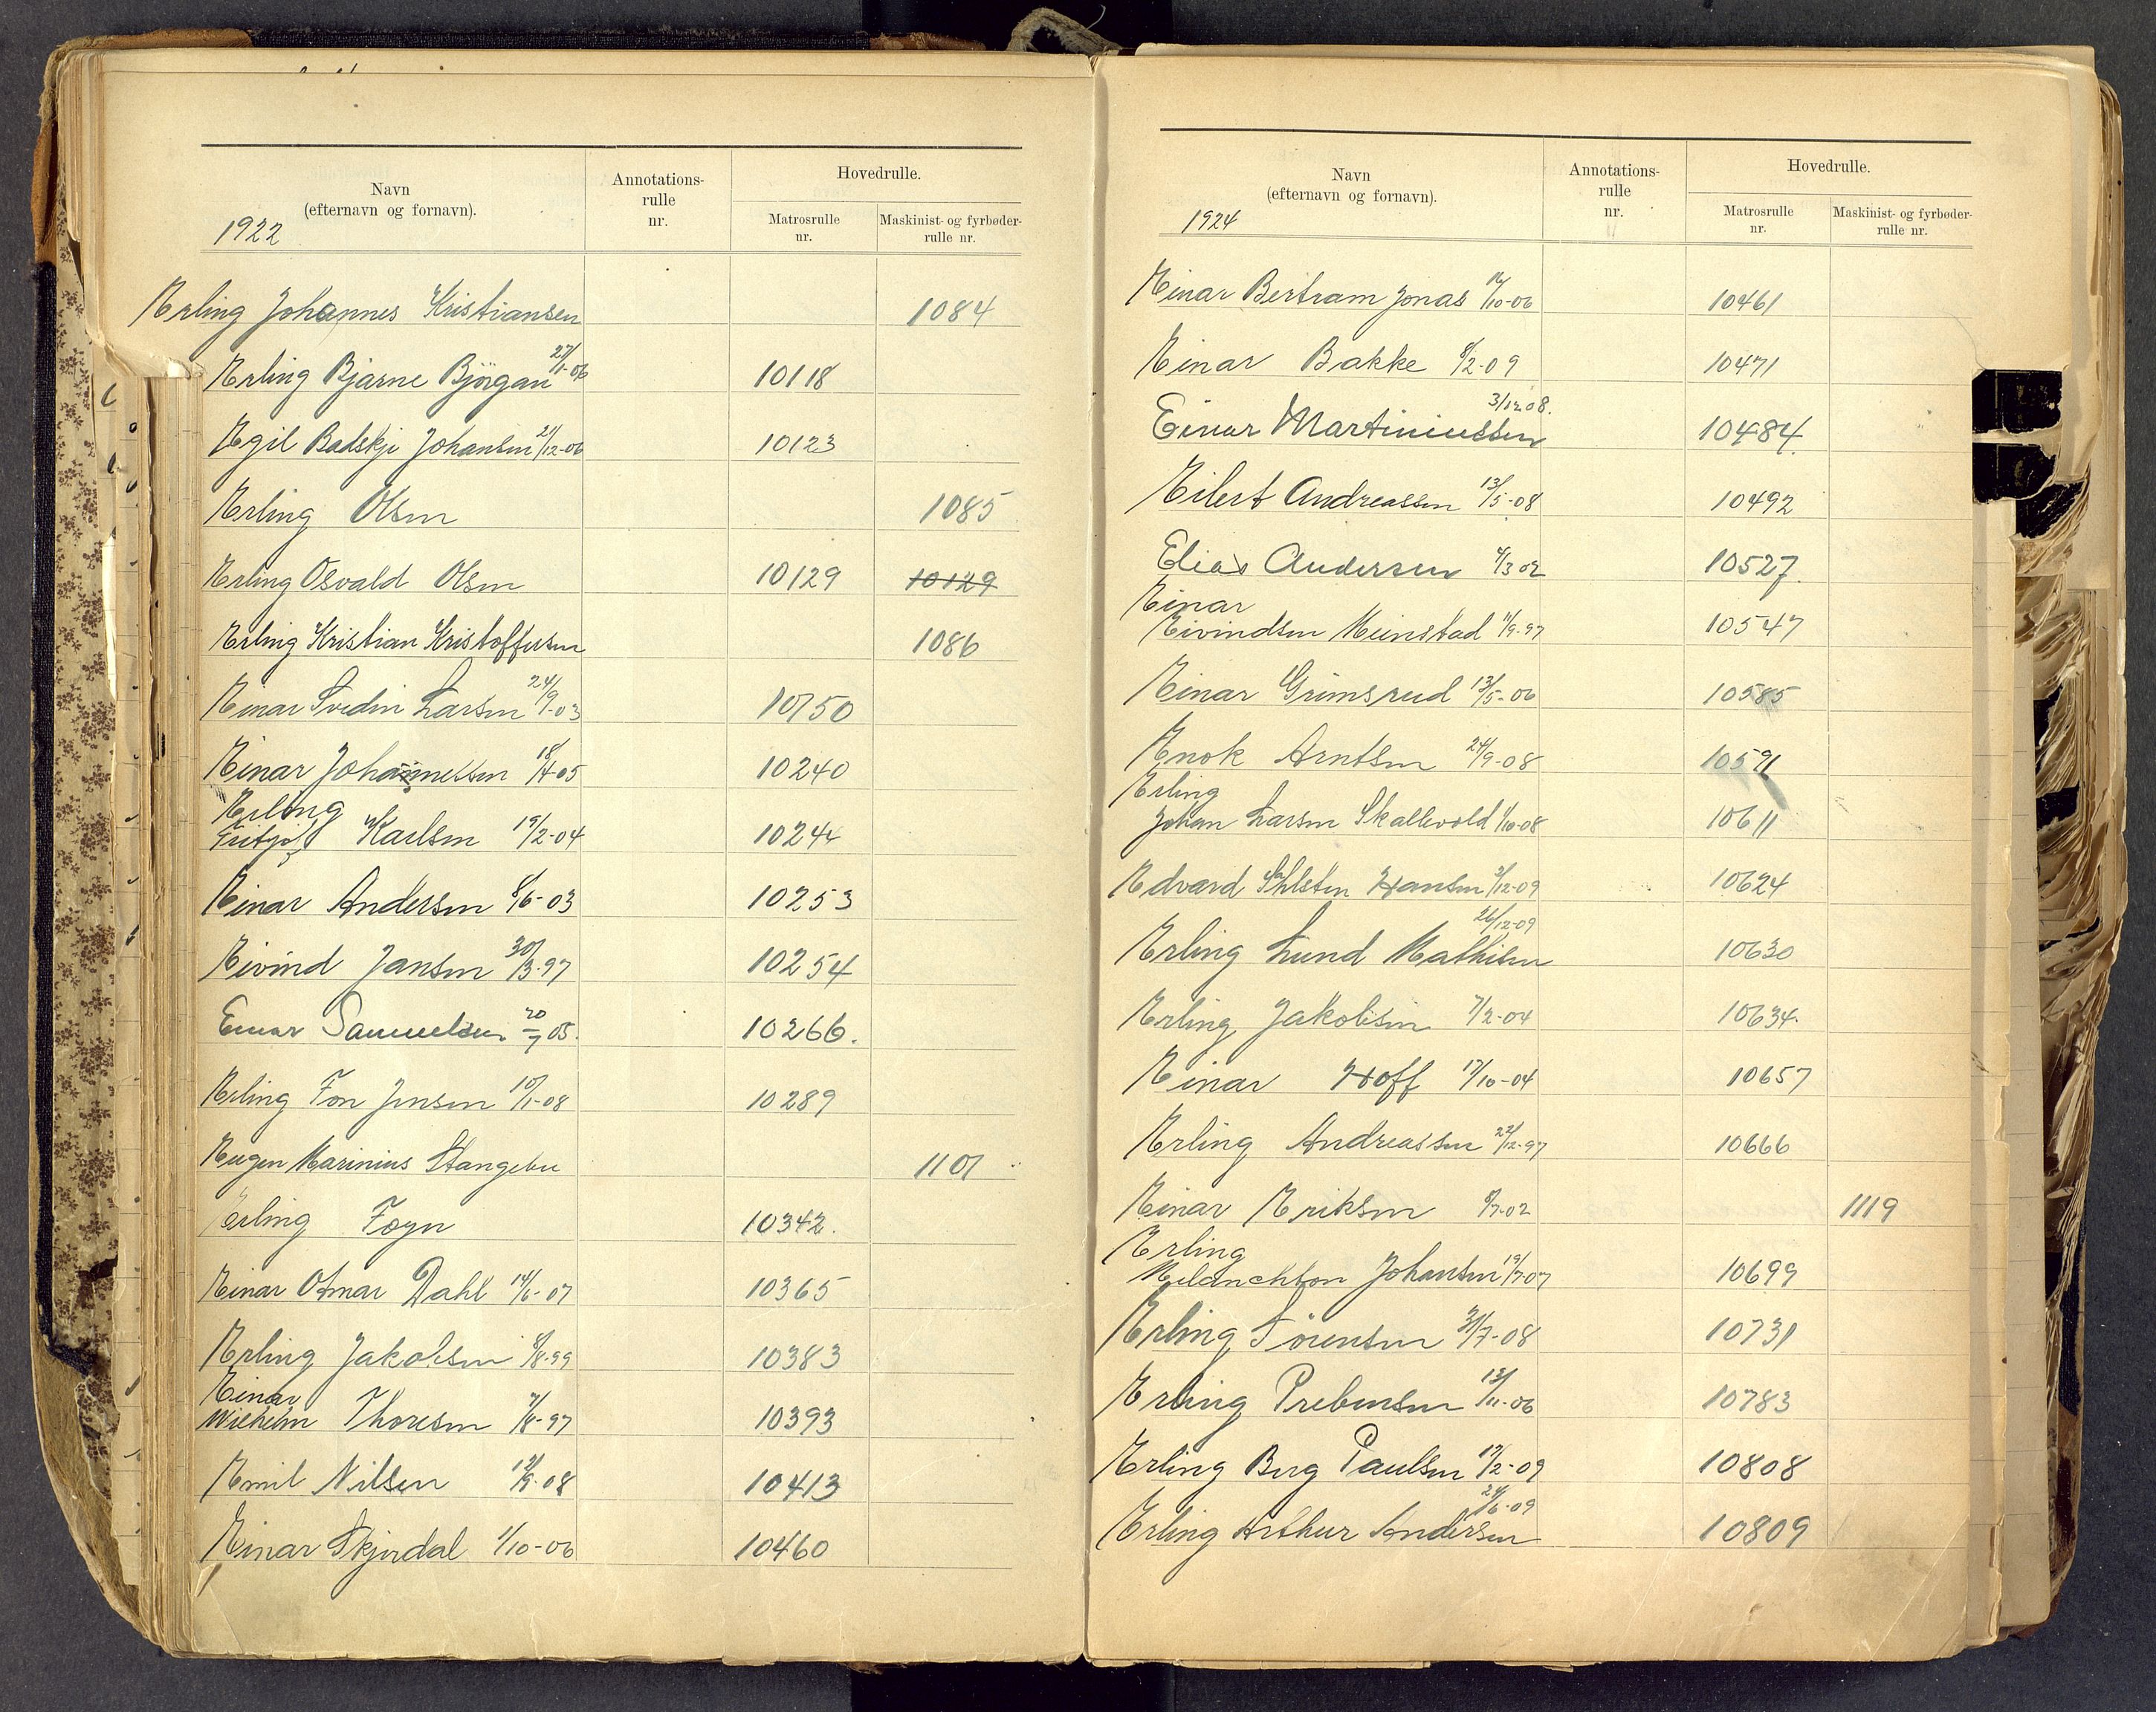 Navn
(efternavn og fornavn).
Annotations-
rulle
nr.
Hovedrulle.
Matrosrulle
nr.
Maskinist- og fyrbøder-
rulle nr.
1922
Erling Johannes Kristiansen 1084
Erling Bjarne Björgan 27/1-06 10118
Egil Badskji Johansen 21/12-06 10123
Erling Olsen 1085
Erling Osvald Olsen 10129 10129
Erling Kristian Kristoffersen 1086
Einar Svedin Larsen 24/9-03 10150
Einar Johannessen 18/4-05 10240
Erling
Fritjof Karlsen 19/2-04 10244
Einar Andersen 8/6-03 10253
Eivind Jansen 30/3-97 10254
Einar Samuelsen 20/7 05. 10266.
Erling Fon Jensen 10/1-08 10289
Eugen Marinius Stangebu 1101
Erling Foyn 10342.
Einar Otmar Dahl 14/6-07 10365
Erling Jakobsen 8/8-99 10383
Einar
Wilhelm Thoresen 7/8-97 10393
Emil Nilsen 10413
Einar Skjerdal 1/10-06 10460
Navn
(efternavn og fornavn).
Annotations-
rulle
nr.
Hovedrulle.
Matrosrulle
nr.
Maskinist- og fyrbøder-
rulle nr.
1924
Einar Bertram Jonas 10461
Einar Bakke 8/2-09 10471
Einar Martiniussen 3/12 08. 10484.
Eilert Andreassen 13/5-08 10492
Elias Andersen 4/3 02 10527.
Einar
Eivindsen Meinstad 11/9-97 10547
Einar Grimsrud 13/5-06 10585
Enok Arntsen 24/9-08 10591
Erling
Johan Larsen Skallevold 1/10-08 10611
Edvard Hansen 10624
Erling Lund Mathisen 26/12-09 10630
Erling Jakobsen 7/2-04 10634.
Einar Hoff 17/10-04 10657
Erling Andreassen 22/12-97 10666
Einar Eriksen 1119
Erling
Melanchton Johansen 19/7-07 10699
Erling Sörensen 31/7-08 10731
Erling Prebensen 10783
Erling Berg Paulsen 17/2-09 10808
Erling Arthur Andersen 24/6-09 10809